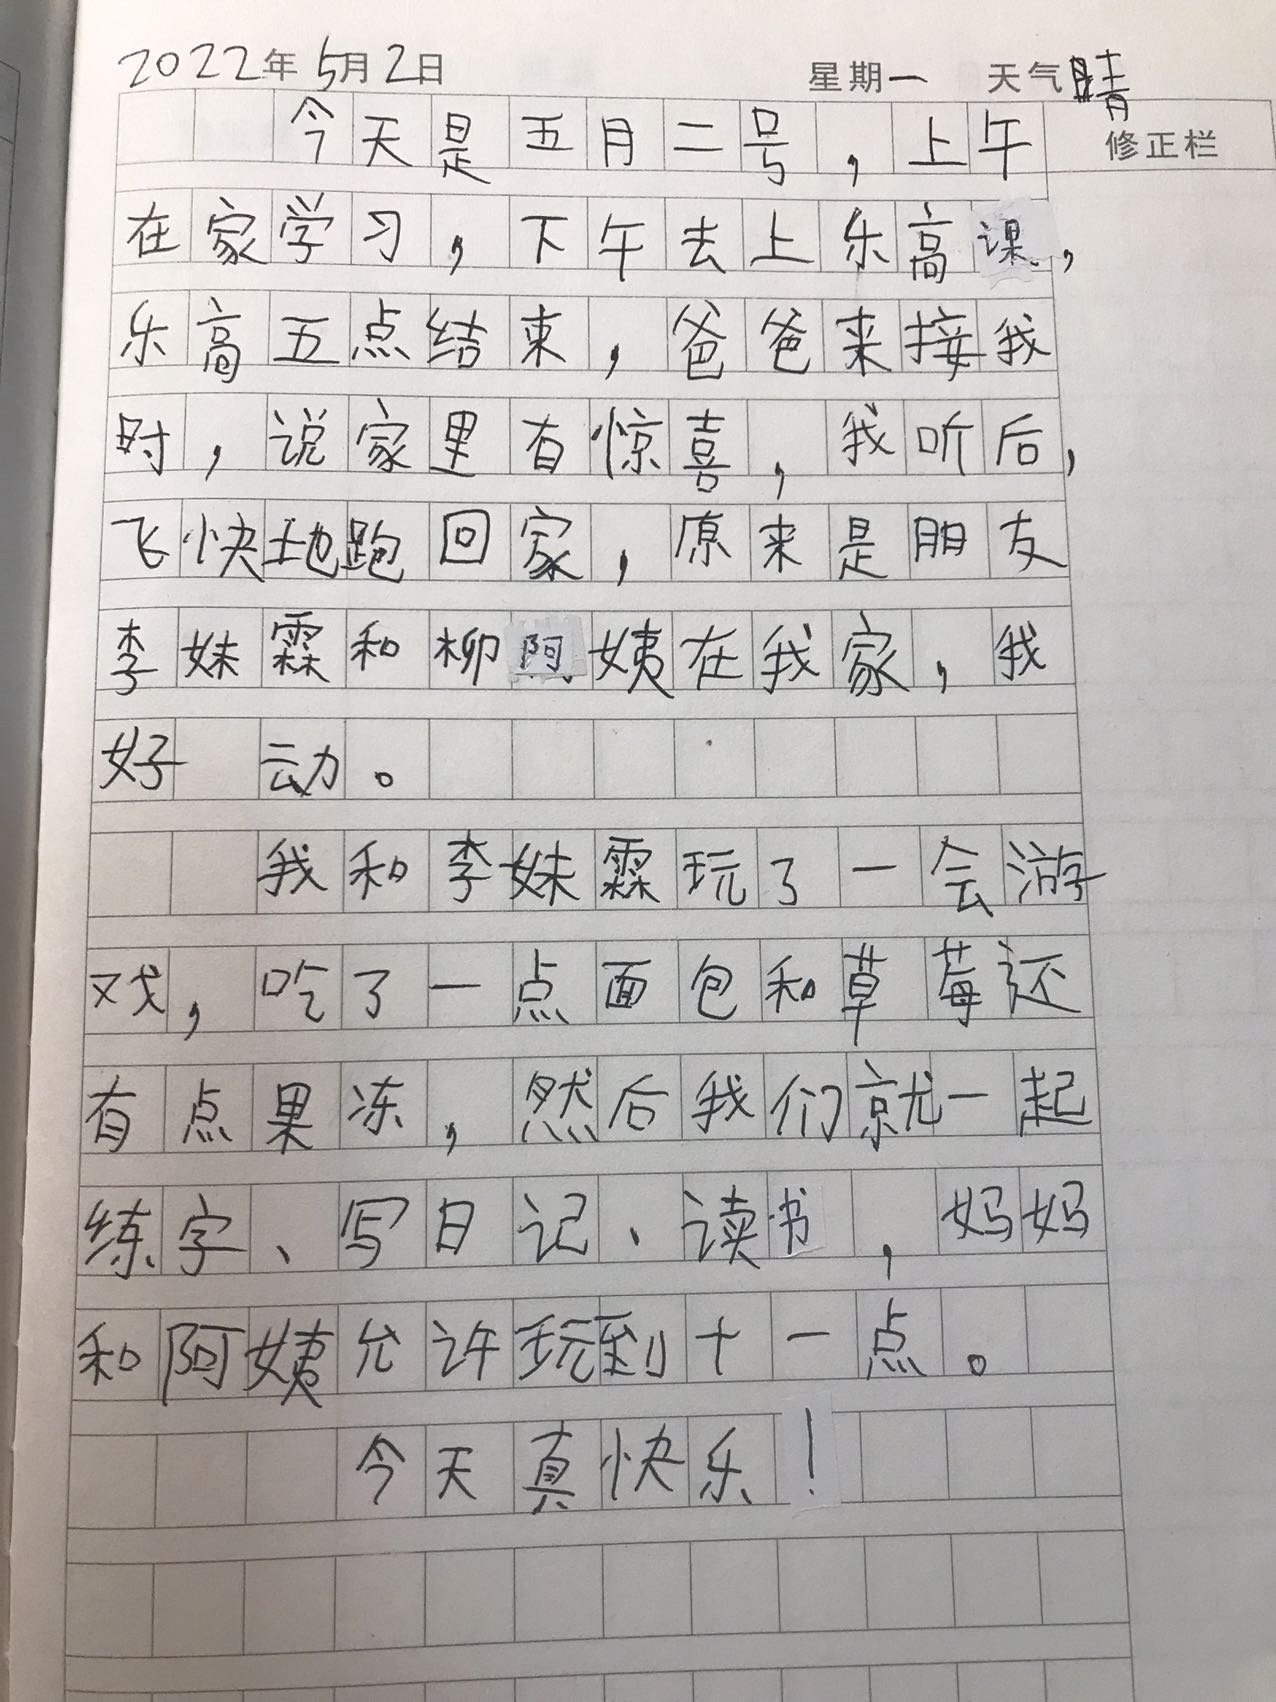 2022年5月2日 星期一 天气晴
修正栏
今天是五月二号，上午
在家学习，下午去上乐高课，
乐高五点结束，爸爸来接我
时，说家里有惊喜，我听后，
飞快地跑回家，原来是朋友
李妹霖和柳阿姨在我家，我
好 动。
我和李妹霖玩了一会游
戏，吃了一点面包和草莓还
有点果冻，然后我们就一起
练字、写日记、读书，妈妈
和阿姨允许玩到十一点。
今天真快乐！